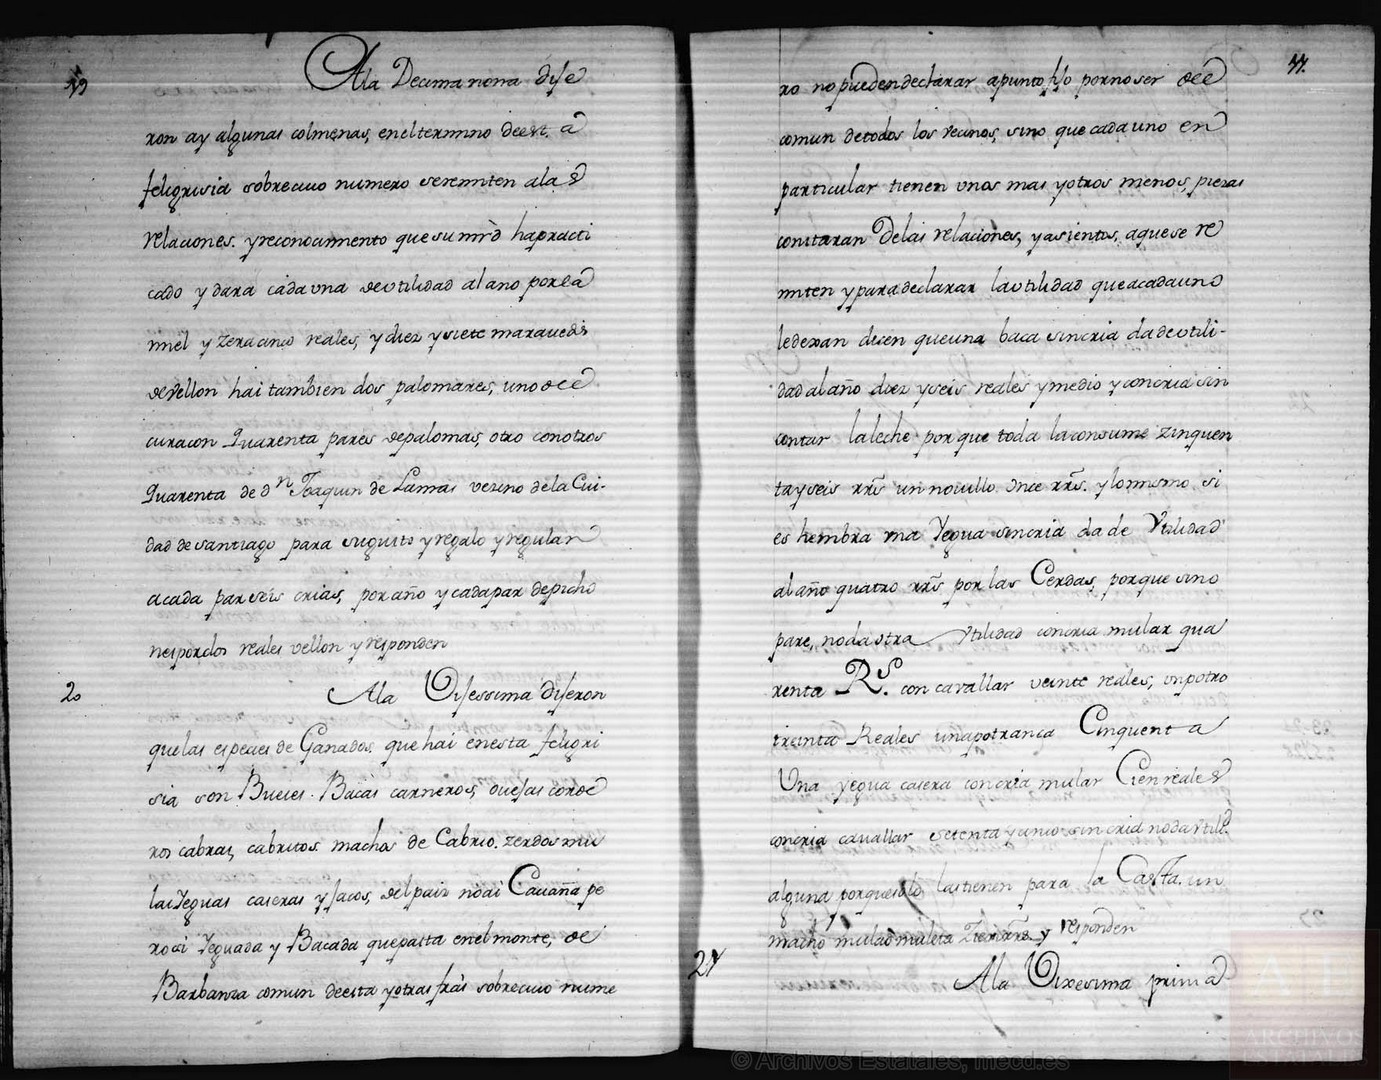 19
Ala Decima nona dixe
ron ay algunas colmenas, enel termino deest. a
feligrisia sobre cuio numero seremiten alas
relaciones. y reconocimiento que su mrd hapracti
cado y dara cada una de utilidad al ano por la
miel y zera cinco reales, y diez y siete maravedis
de vellon hai tambien dos palomares, uno del
cura con quarenta pares de palomas, otro con otros
quarenta de dn Joaquin de Lamas vezino de la Ciu-
dad de santiago para su gusto y regalo y regulan
acada par seis crias, por año y cada par de picho
nes por dos reales vellon y responden
20
Ala Vixessima dixeron
que las especies de Ganados, que hai enesta feligri
sia son Bueies. Bacas carneros, ovejas corde
ros cabras, cabritos machos de Cabrio. zerdos mu
las Yeguas caseras y Jacos, del pais no ai Cavaña pe
ro ai Yeguada y Bacada que pasta enel monte, de
Barbanza comun deesta y otras frãs sobre cuio nume
77.
ro no pueden declarar a punto fijo por no ser del
comun de todos los vecinos, sino que cada uno en
particular tienen unos mas y otros menos, piezas
constaran De las relaciones, y asientos, a que se re
miten y para declarar la utilidad que a cada uno
le dexan dicen que una baca sin cria da de utili-
dad al año diez y seis reales y medio y con cria sin
contar la leche por que toda la consume zinquen
ta y seis rrs un novillo Once rrs. y lo mismo, si
es hembra una Yegua sin cria da de Utilidad
al año quatro rrs por las Cerdas, porque sino
pare, no da otra Utilidad con cria mular qua
renta Rs. con cavallar veinte reales, un potro
treinta Reales una potranca Cinquenta
Una yegua casera con cria mular Cien reales
con cria cavallar setenta y cinco sin cria no da Utild.
alguna porque solo las tienen para la Casta, un
macho mulao muleta y responden
21
Ala Vixesima prima
© Archivos Estatales, mecd.es
ARCHIVOS
ESTATALES